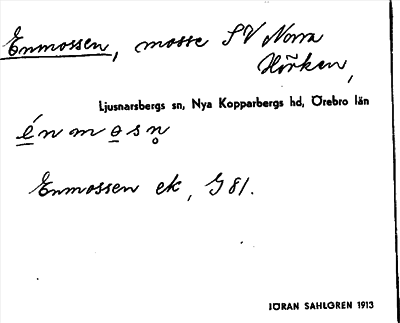 Enmossen, mosse SV Norra
Hörken,
Ljusnarsbergs sn, Nya Kopparbergs hd, Örebro län
énmosn̥
Enmossen ek, G 81.
JÖRAN SAHLGREN 1913